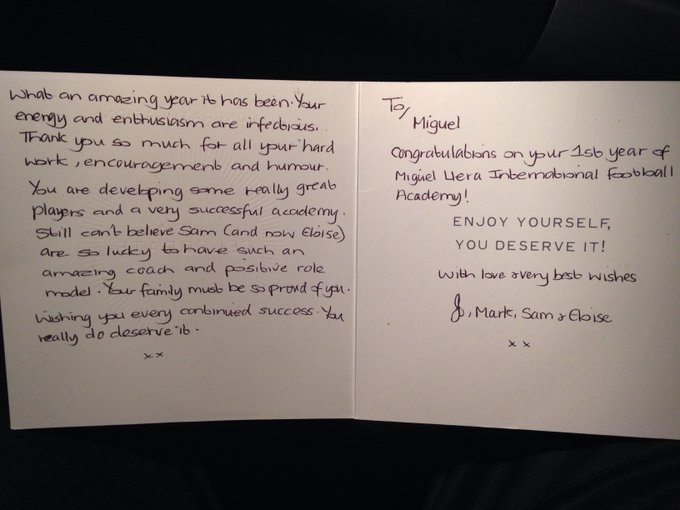 What an amazing year it has been. Your
energy and enthusiasm are infectious.
Thank you so much for all your hard
work, encouragement and humour.
You are developing some really great
players and a very successful academy.
Still can't believe Sam (and now Eloise)
are so lucky to have such an
amazing coach and positive role
model. Your family must be so proud of you.
Wishing you every continued success. You
really do deserve it.
x x
To/
Miguel
Congratulations on your 1st year of
Miguel Llera International Football
Academy!
ENJOY YOURSELF,
YOU DESERVE IT!
With love & very best wishes
Jo, Mark, Sam & Eloise
x x